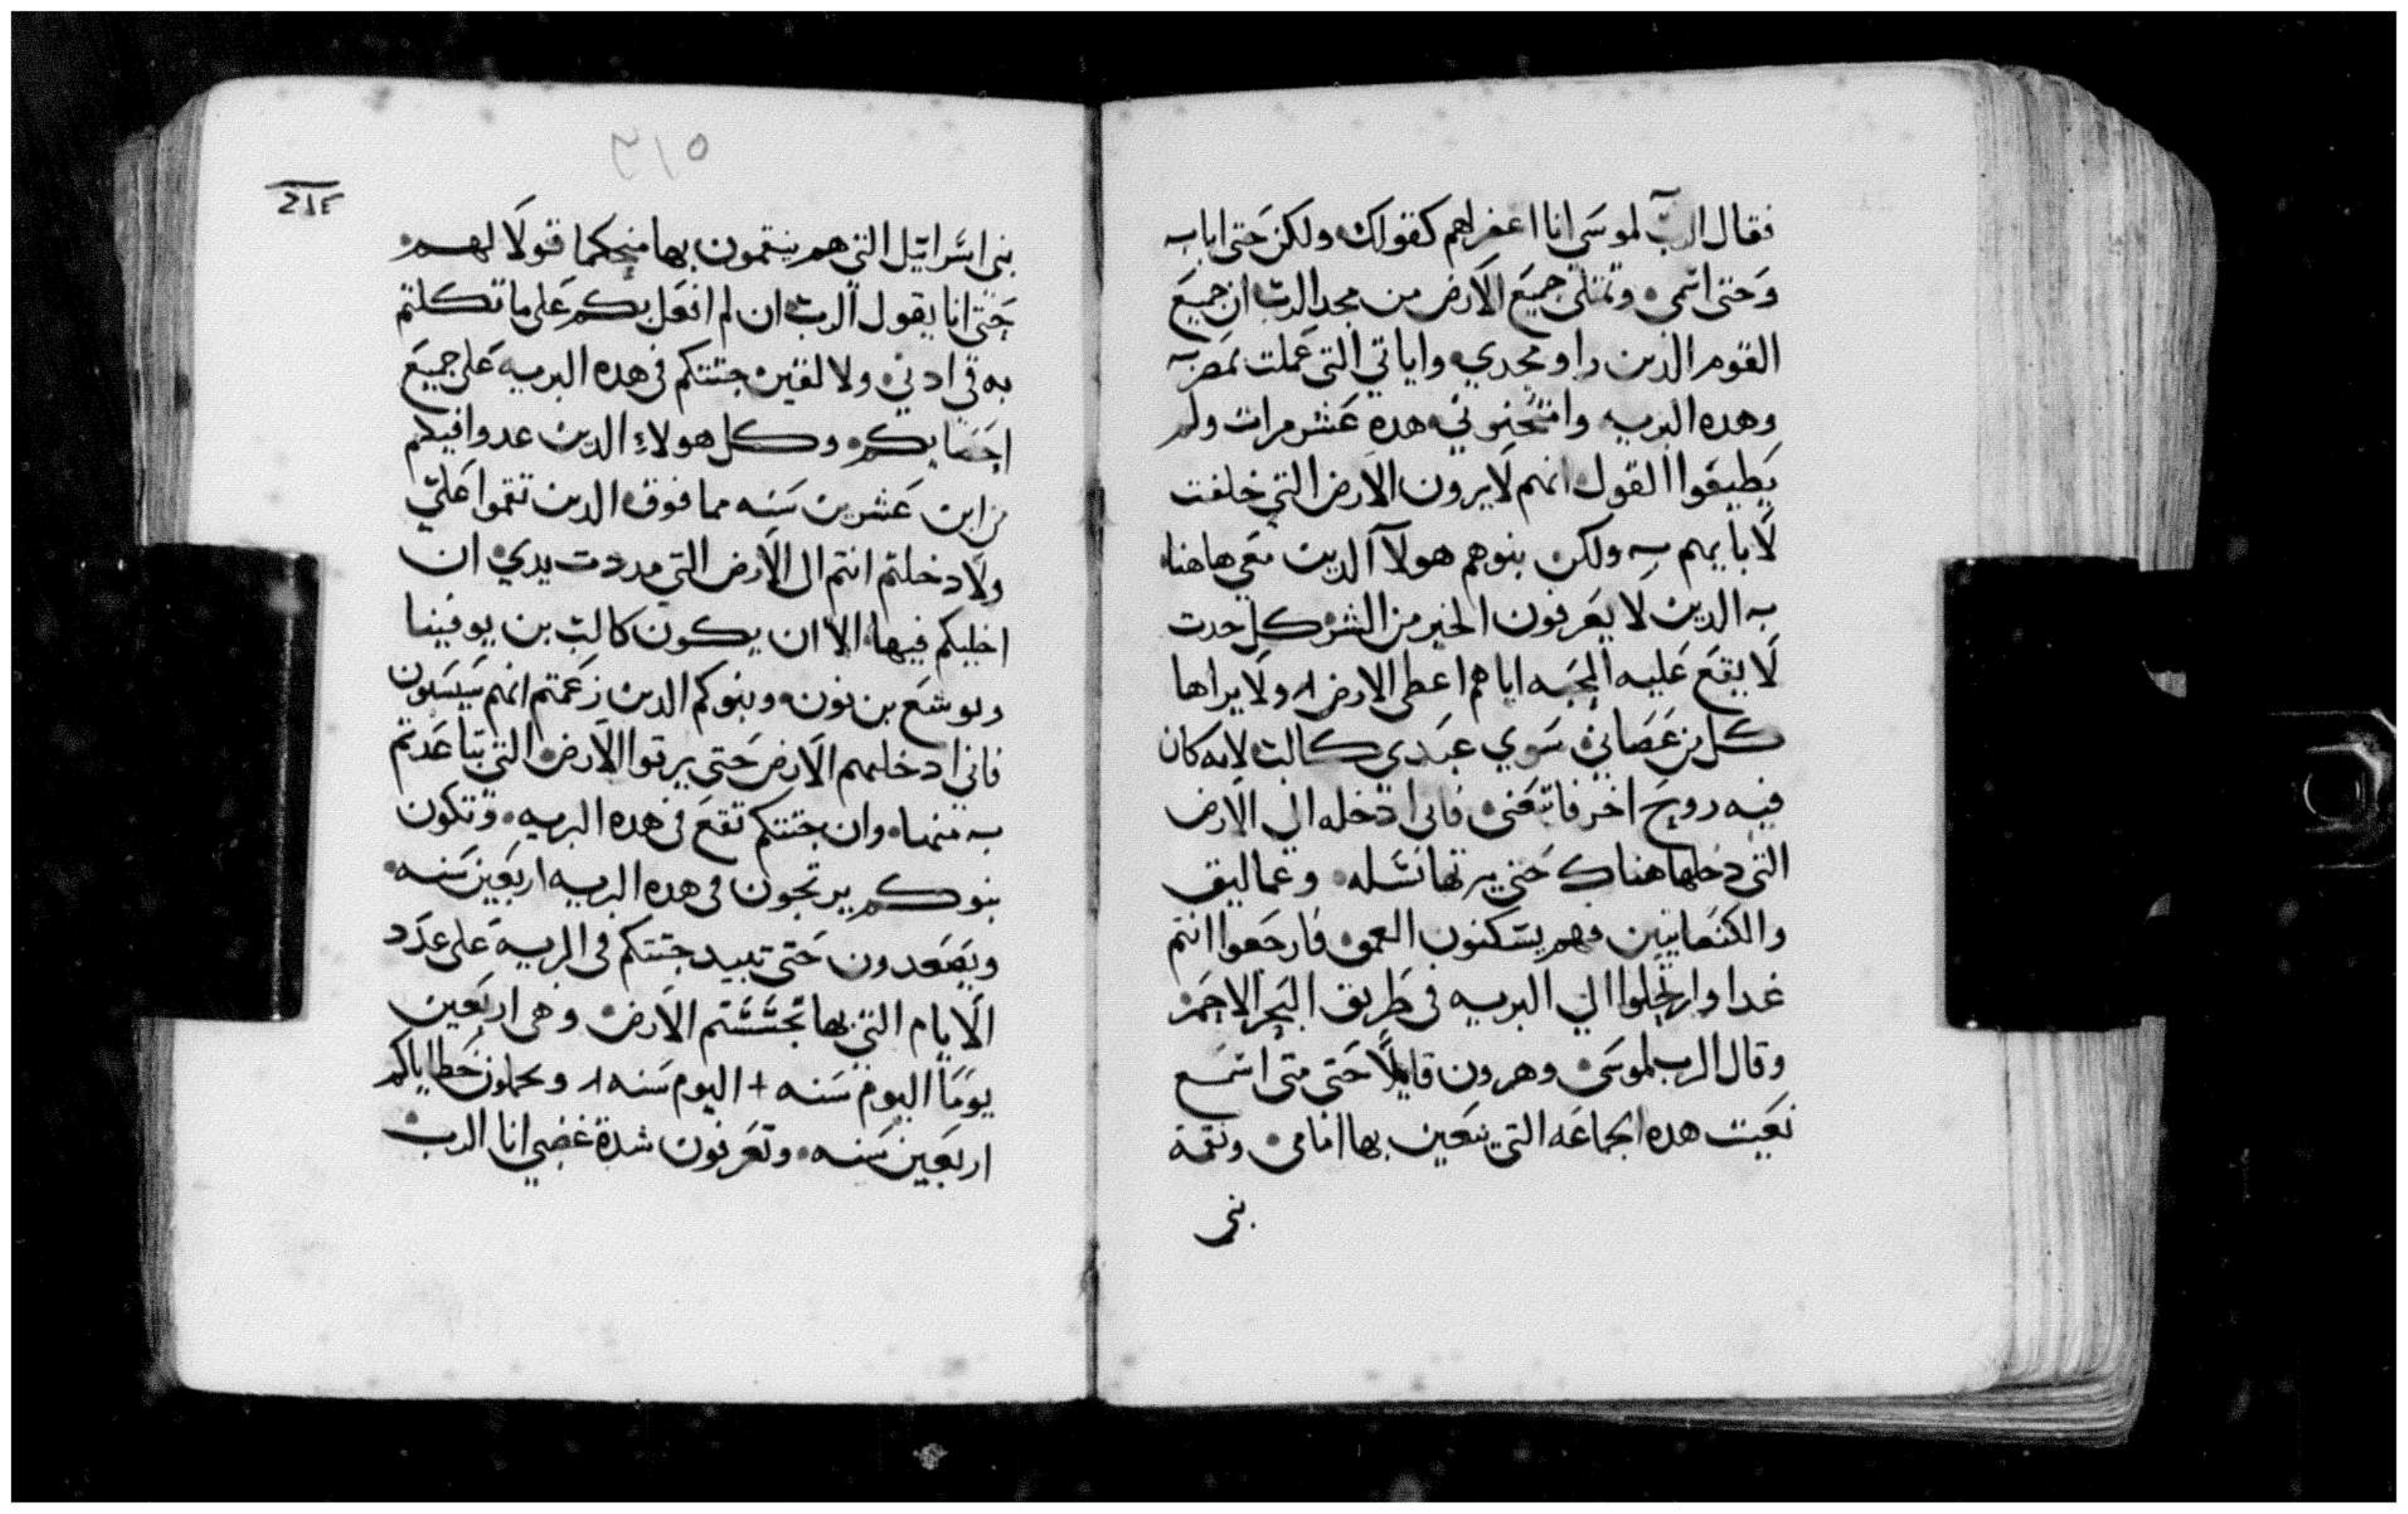 فقال الرب لموسى انا اغفر لهم كقولك ولكن حتى انا به
وحتى اسمي وتمتلي جميع الارض من مجد الرب ان جميع
القوم الذين راو مجدي واياتي التي عملت بمصر به
وهده البريه وامتحنوني هده عشر مرات ولم
يطيعوا القول انهم لا يرون الارض التي خلفت
لابايهم به ولكن بنوهم هولآ الدين معي هاهنا
به الدين لا يعرفون الخير من الشر كل حدت
لا يقع عليه المحبه اياهم اعطى الارض ولا يراها
كل من عصاني سوي عبدي كالب لانه كان
فيه روح اخر فاتبعني فاني ادخله الى الارض
التي دخلها هناك حتى يرتها نسله وعماليق
والكنعانيين فهم يسكنون العمق فارجعوا انتم
غدا وارتحلوا الي البريه في طريق البحر الاحمر
وقال الرب لموسى وهرون قايلاً حتى متى اسمع
نعيت هده الجماعه التي ينعين بها امامي ونقمة
بني
٣١٥
بني اسراييل التي هم ينقمون بها منجكما قولا لهم
حتى انا يقول الرب ان لم افعل بكم على ما تكلمتم
به في ادني ولا لقين جتتكم في هده البريه على جميع
احسابكم وكل هولاء الدين عدوا فيكم
من ابن عشرين سنه مما فوق الدين نقموا علي
ولا دخلتم انتم الى الارض التي مددت يدي ان
احلكم فيها الا ان يكون كالب بن يوفينا
ويوشع بن نون وبنوكم الدين زعمتم انهم يسبون
فاني ادخلهم الارض حتى يرتوا الارض التي تباعدتم
به منها وان جتتكم تقع في هده البريه وتكون
بنوكم يرتجون في هده البريه اربعين سنه
ويصعدون حتى تبيد جتتكم في البريه على عدد
الايام التي بها تجسستم الارض وهي اربعين
يوماً اليوم سنه + اليوم سنه ويحملون خطاياكم
اربعين سنه وتعرفون شدة غضبي انا الرب